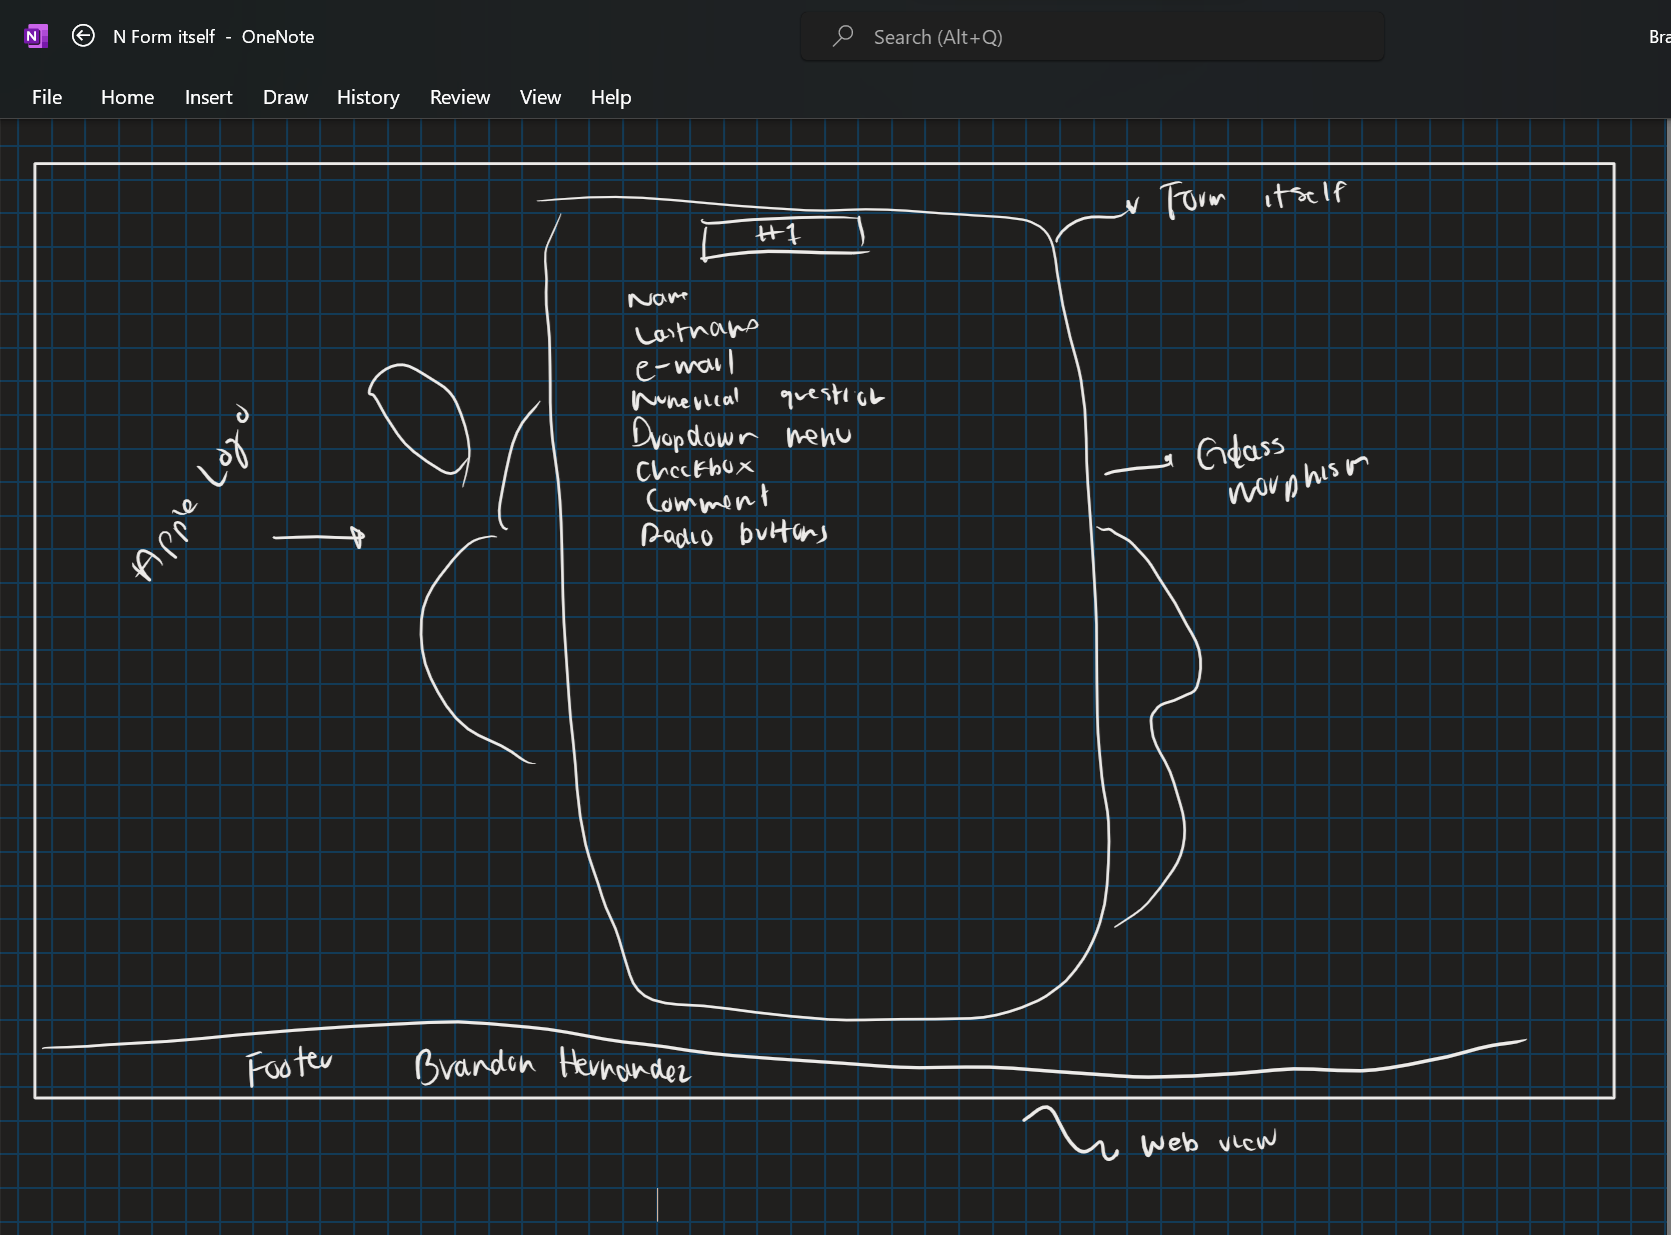 N Form itself - OneNote
Search (Alt+Q)
Bra
File Home Insert Draw History Review View Help
Form itself
#1
Name
Lastname
e-mail
Numerical question
Dropdown menu
Checkbox
Comment
Radio buttons
Apple Logo
Glass
morphism
Footer Brandon Hernandez
Web view